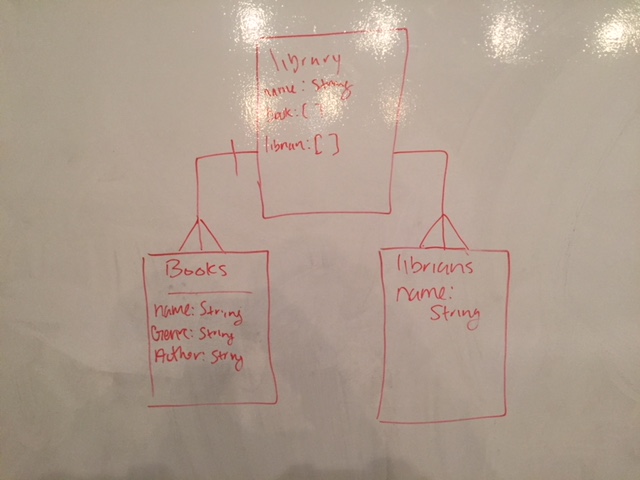 library
name: String
book: [ ]
librian: [ ]
Books
name: String
Genre: String
Author: String
librians
name:
String